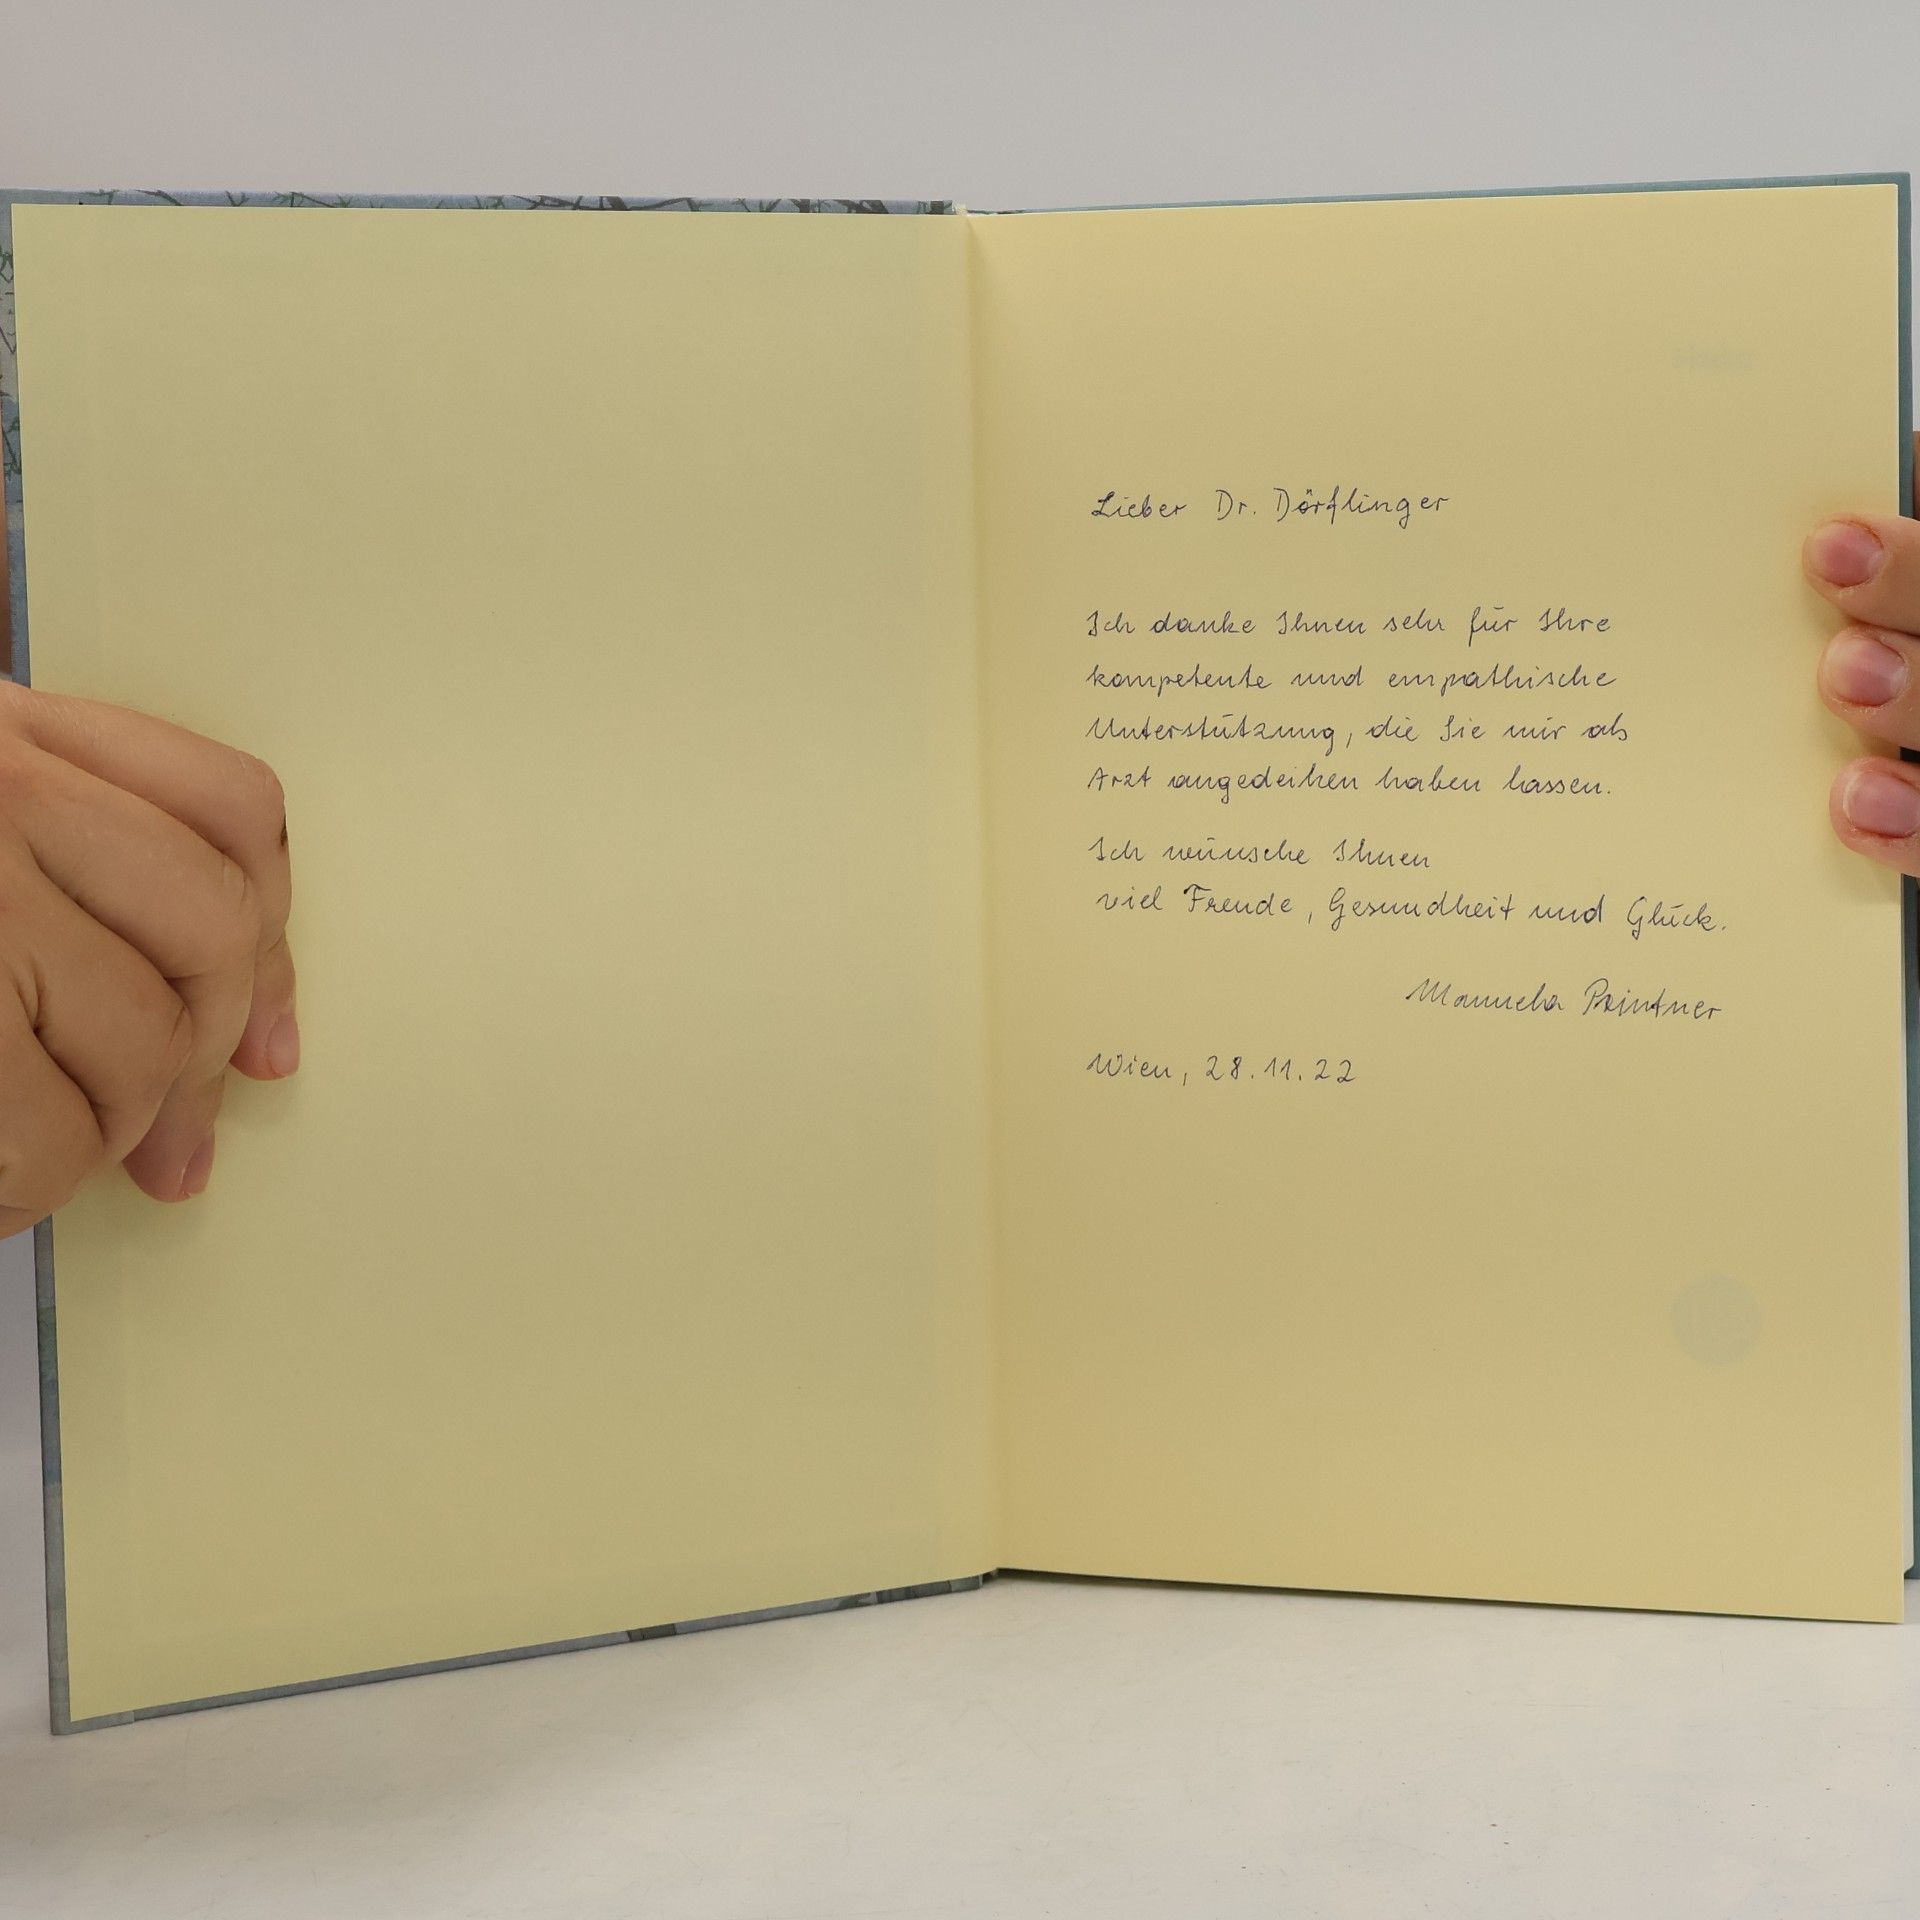 Lieber Dr. Dörflinger
Ich danke Ihnen sehr für Ihre
kompetente und empathische
Unterstützung, die Sie mir als
Arzt angedeihen haben lassen.
Ich wünsche Ihnen
viel Freude, Gesundheit und Glück.
Manuela Printner
Wien, 28.11.22